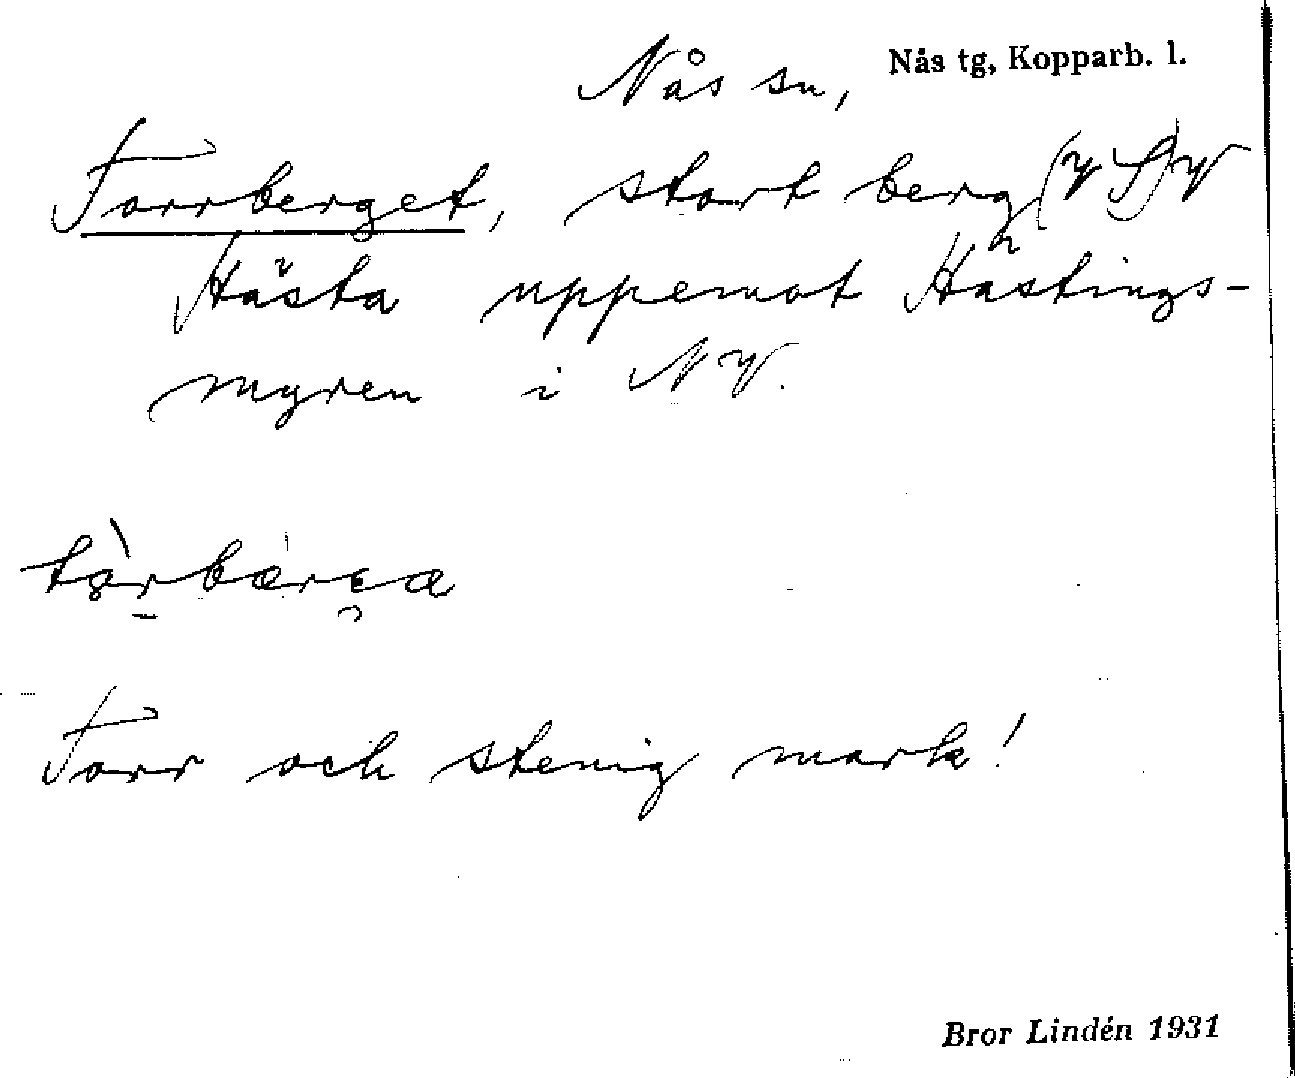 Nås sn, Nås tg, Kopparb. l.
Torrberget, stort berg (V S) V
Hästa uppemot Hästings-
myren i NV.
Torr och stenig mark!
Bror Lindén 1931